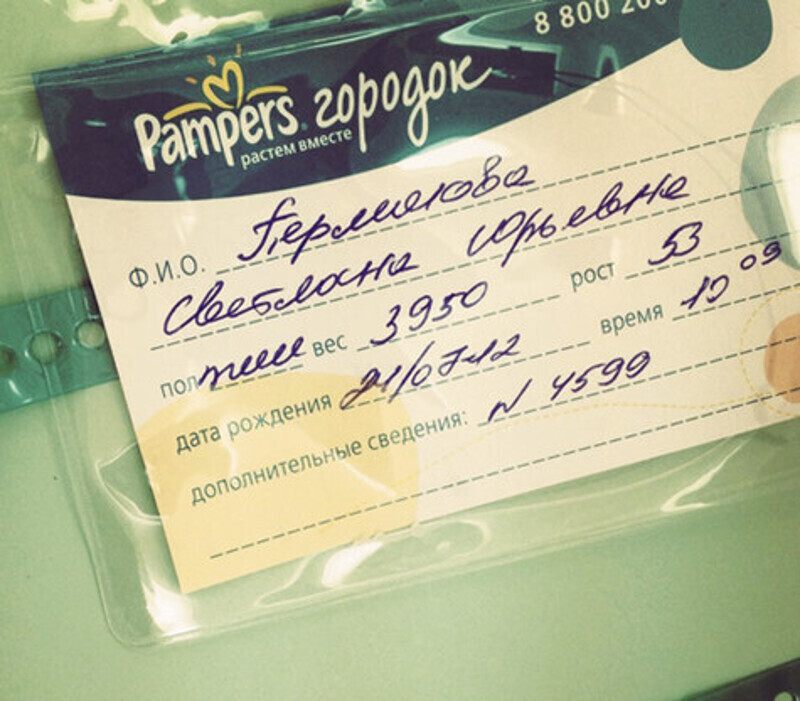 8 800 200
Pampers городок
растем вместе
Ф.И.О. Пермякова
Светлана Юрьевна
пол жен вес 3950 рост 53
дата рождения 21/07-12 время 10 09
дополнительные сведения: N 4599